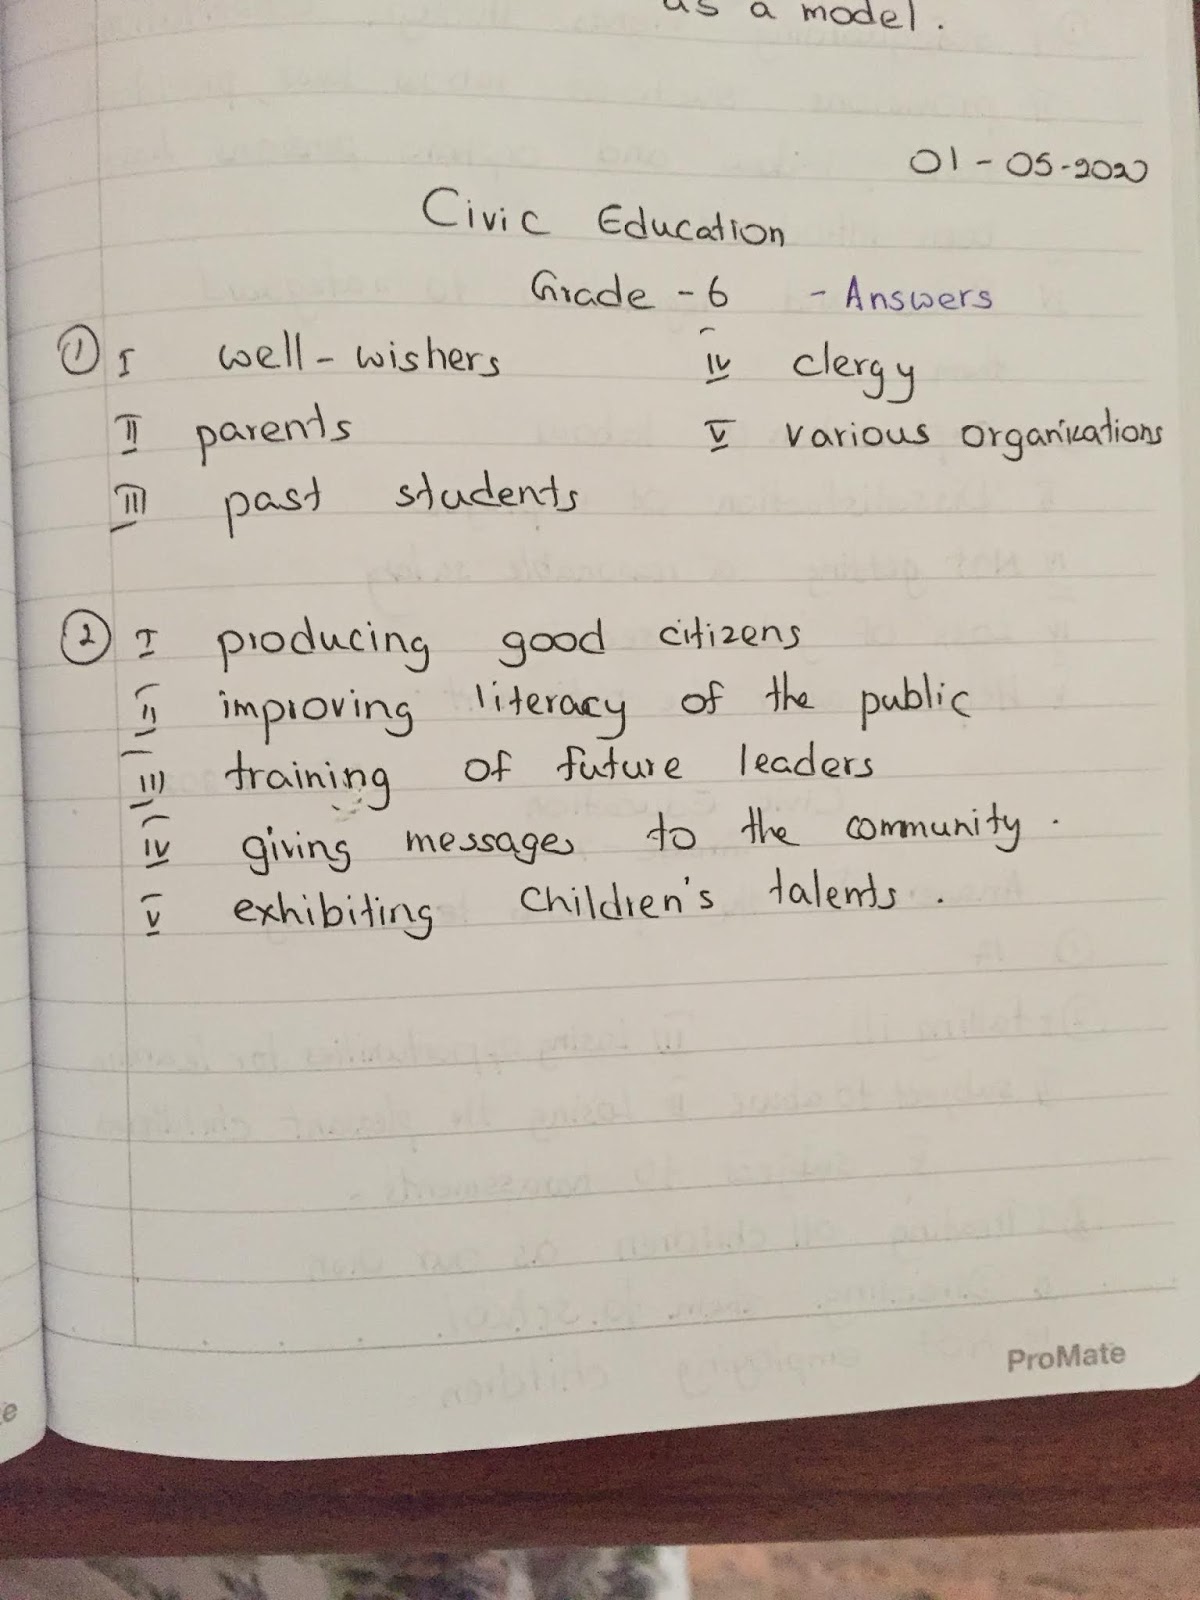 as a model.
01-05-2020
Civic Education
Grade - 6 - Answers
① I well-wishers IV clergy
II parents V various organizations
III past students
② I producing good citizens
II improving literacy of the public
III training of future leaders
IV giving messages to the community.
V exhibiting children's talents.
ProMate
e